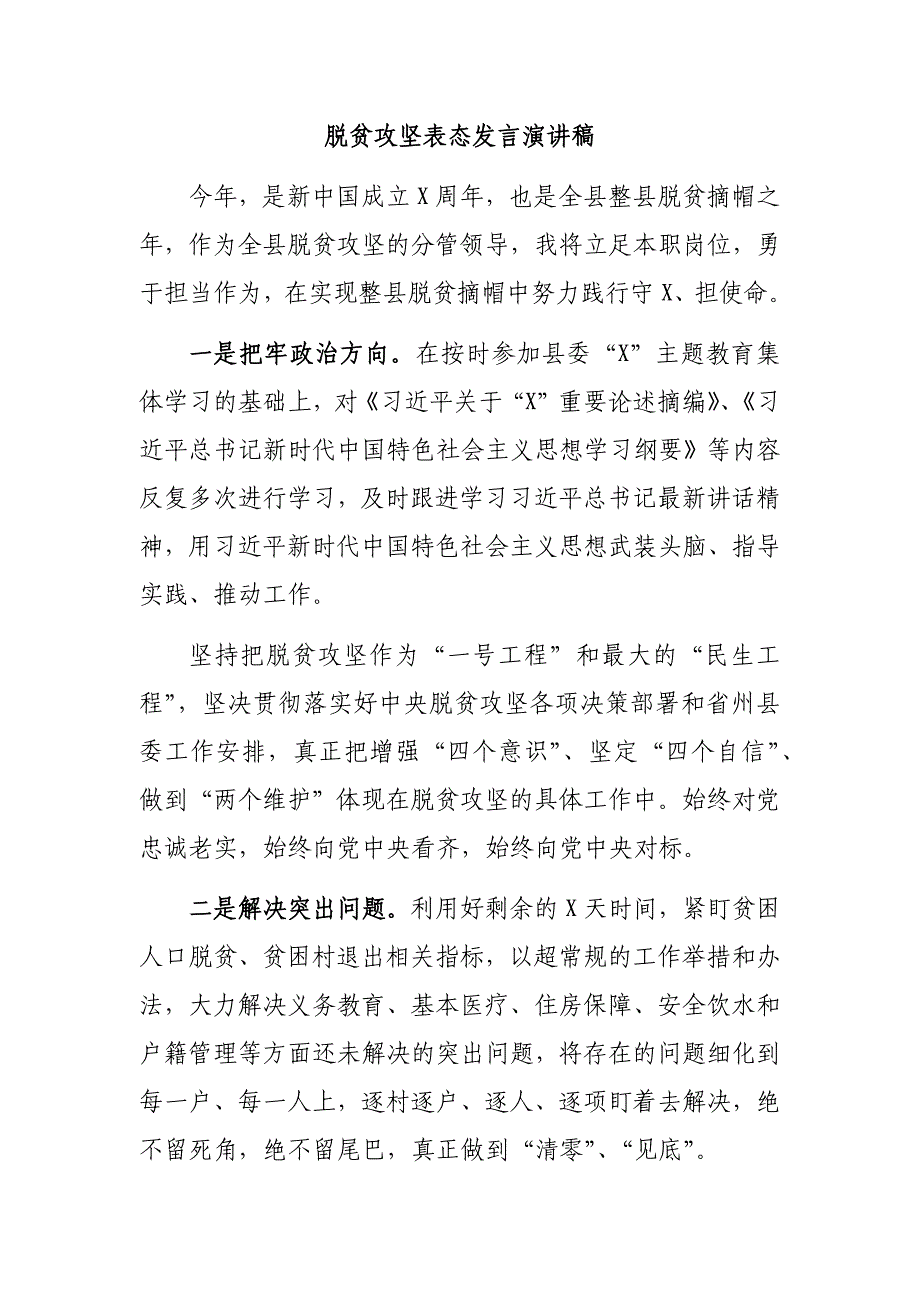 脱贫攻坚表态发言演讲稿
今年，是新中国成立 X 周年，也是全县整县脱贫摘帽之
年，作为全县脱贫攻坚的分管领导，我将立足本职岗位，勇
于担当作为，在实现整县脱贫摘帽中努力践行守 X、担使命。
一是把牢政治方向。在按时参加县委“X”主题教育集
体学习的基础上，对《习近平关于“X”重要论述摘编》、《习
近平总书记新时代中国特色社会主义思想学习纲要》等内容
反复多次进行学习，及时跟进学习习近平总书记最新讲话精
神，用习近平新时代中国特色社会主义思想武装头脑、指导
实践、推动工作。
坚持把脱贫攻坚作为“一号工程”和最大的“民生工
程”，坚决贯彻落实好中央脱贫攻坚各项决策部署和省州县
委工作安排，真正把增强“四个意识”、坚定“四个自信”、
做到“两个维护”体现在脱贫攻坚的具体工作中。始终对党
忠诚老实，始终向党中央看齐，始终向党中央对标。
二是解决突出问题。利用好剩余的 X 天时间，紧盯贫困
人口脱贫、贫困村退出相关指标，以超常规的工作举措和办
法，大力解决义务教育、基本医疗、住房保障、安全饮水和
户籍管理等方面还未解决的突出问题，将存在的问题细化到
每一户、每一人上，逐村逐户、逐人、逐项盯着去解决，绝
不留死角，绝不留尾巴，真正做到“清零”、“见底”。